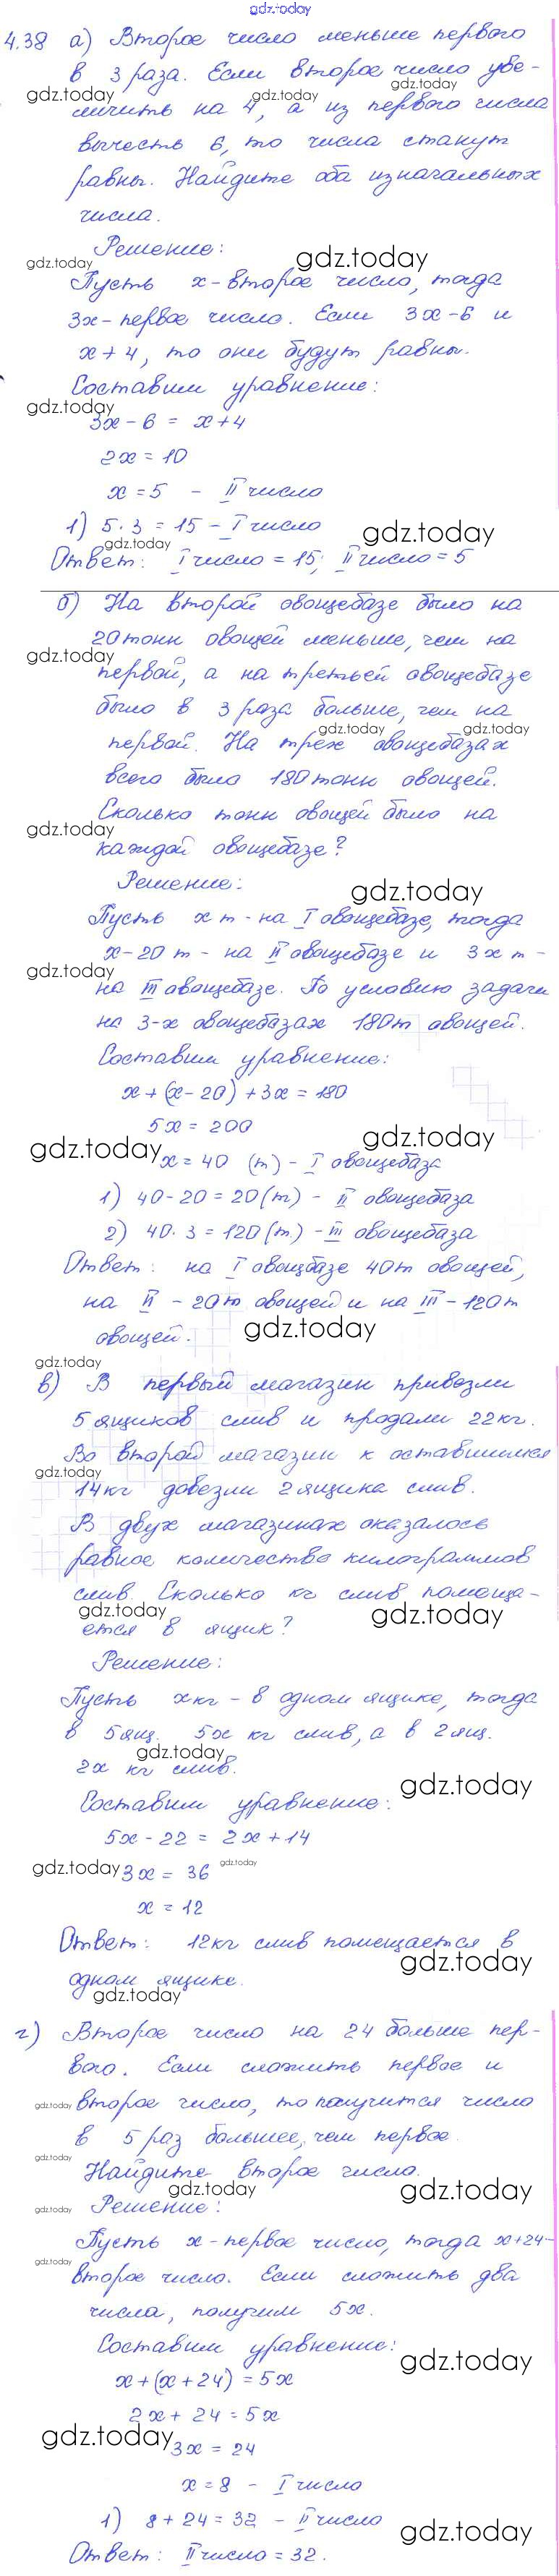 gdz.today
4.38 а) Второе число меньше первого
в 3 раза. Если второе число уве-
gdz.today gdz.today gdz.today
личить на 4, а из первого числа
вычесть 6, то числа станут
равны. Найдите оба изначальных
числа.
Решение:
gdz.today gdz.today
Пусть x - второе число, тогда
3x - первое число. Если 3x-6 и
x+4, то они будут равны.
Составим уравнение:
gdz.today
3x - 6 = x+4
2x = 10
x = 5 - II число
1) 5·3 = 15 - I число
gdz.today gdz.today
Ответ: I число = 15; II число = 5
б) На второй овощебазе было на
20 тонн овощей меньше, чем на
gdz.today
первой, а на третьей овощебазе
было в 3 раза больше, чем на
gdz.today gdz.today
первой. На трех овощебазах
всего было 180 тонн овощей.
Сколько тонн овощей было на
gdz.today
каждой овощебазе?
Решение:
gdz.today
Пусть x т - на I овощебазе, тогда
x-20 т - на II овощебазе и 3x т -
gdz.today
на III овощебазе. По условию задачи
на 3-х овощебазах 180т овощей.
Составим уравнение:
x + (x - 20) + 3x = 180
5x = 200
gdz.today gdz.today
x = 40 (т) - I овощебаза
1) 40-20 = 20(т) - II овощебаза
2) 40·3 = 120(т) - III овощебаза
Ответ: на I овощбазе 40т овощей,
на II - 20т овощей и на III - 120т
овощей.
gdz.today
gdz.today
в) В первый магазин привезли
5 ящиков слив и продали 22кг.
Во второй магазин к оставшимся
gdz.today
14кг довезли 2 ящика слив.
В двух магазинах оказалось
равное количество килограммов
слив. Сколько кг слив помеща-
gdz.today gdz.today
ется в ящик?
Решение:
Пусть xкг - в одном ящике, тогда
в 5 ящ. 5x кг слив, а в 2 ящ.
gdz.today
2x кг слив.
gdz.today
Составим уравнение:
5x - 22 = 2x + 14
gdz.today gdz.today
3x = 36
x = 12
Ответ: 12кг слив помещается в
gdz.today
одном ящике.
gdz.today
г) Второе число на 24 больше пер-
вого. Если сложить первое и
gdz.today
второе число, то получится число
в 5 раз большее, чем первое.
gdz.today
Найдите второе число.
gdz.today gdz.today
gdz.today
Решение:
Пусть x - первое число, тогда x+24-
gdz.today
второе число. Если сложить два
числа, получим 5x.
Составим уравнение:
gdz.today
x + (x + 24) = 5x
2x + 24 = 5x
gdz.today
3x = 24
x = 8 - I число
1) 8 + 24 = 32 - II число
gdz.today
Ответ: II число = 32.